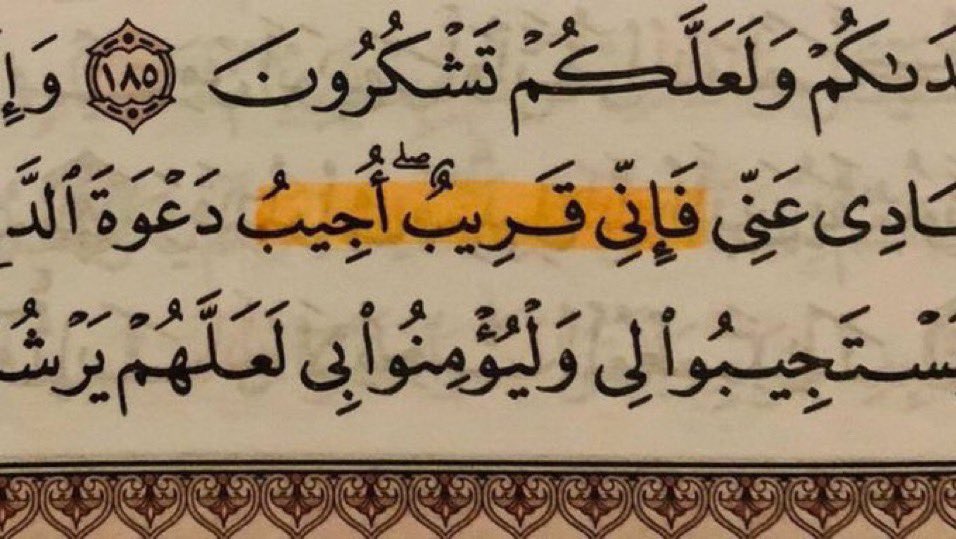 دَىٰكُمْ وَلَعَلَّكُمْ تَشْكُرُونَ ١٨٥ وَإِ
ـادِى عَنِّى فَإِنِّى قَرِيبٌ ۖ أُجِيبُ دَعْوَةَ ٱلدَّ
ـسْتَجِيبُوا۟ لِى وَلْيُؤْمِنُوا۟ بِى لَعَلَّهُمْ يَرْشُ